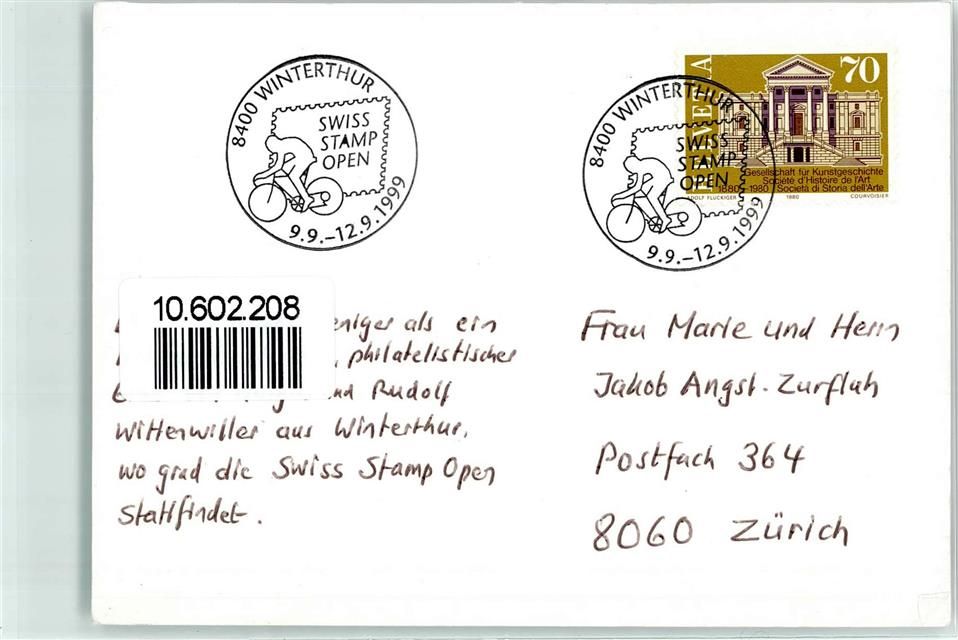 8400 WINTERTHUR
SWISS
STAMP
OPEN
9.9.–12.9.1999
8400 WINTERTHUR
SWISS
STAMP
OPEN
9.9.–12.9.1999
HELVETIA
70
Gesellschaft für Kunstgeschichte
Société d'Histoire de l'Art
1880-1980 Società di Storia dell'Arte
ADOLF FLÜCKIGER 1980 COURVOISIER
10.602.208
als ein
philatelistischer
Rudolf
Wittenwiller aus Winterthur,
wo grad die Swiss Stamp Open
stattfindet.
Frau Marie und Herrn
Jakob Angst-Zurfluh
Postfach 364
8060 Zürich